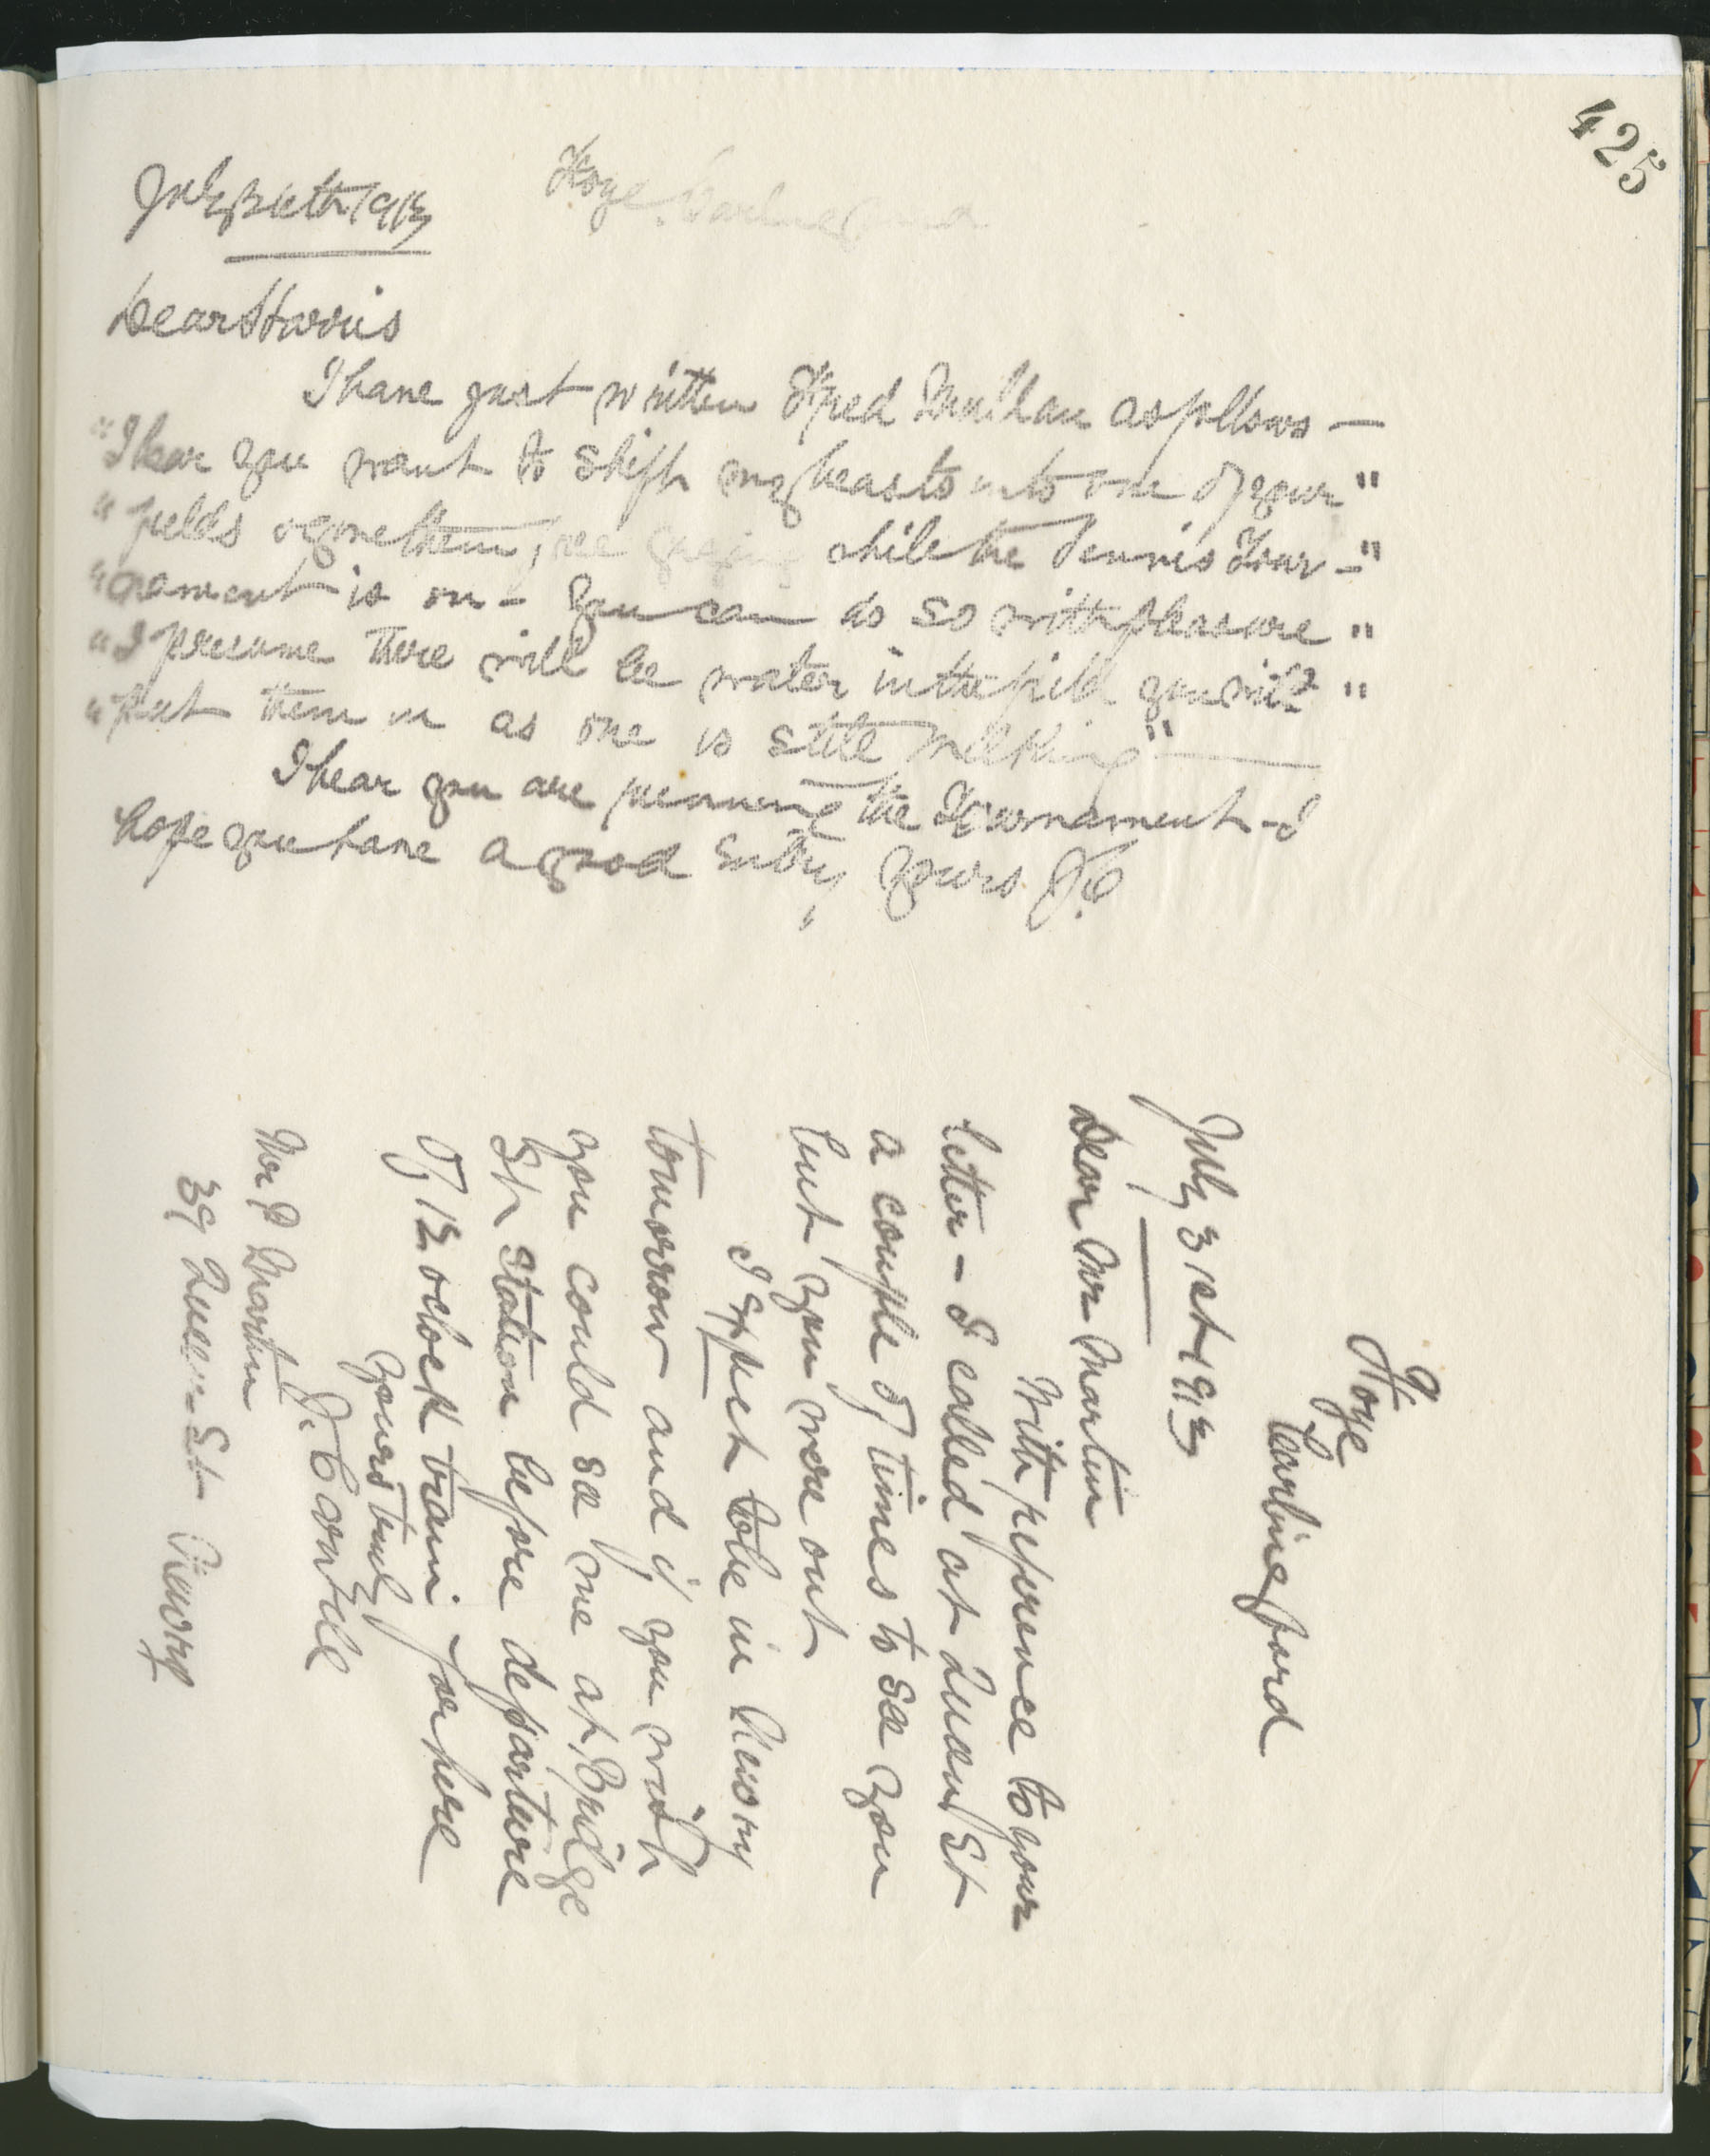 425
Hoye
July 30th 1913
Dear Harris
I have just written Fred as follows —
"I hear you want to shift my beasts into one of your"
"fields & give them free grazing while the Tennis Tour-"
"nament is on - you can do so with pleasure"
"I presume there will be water in the field you will"
"put them in as one is still milking"
I hear you are running the Tournament - I
hope you have a good entry, yours JC
9 Hoye
Warlingford
July 31st 1913
Dear Mr Martin
With reference to your
letter - I called at Queen St
a couple of times to see you
but you were out
I expect to be in Newry
tomorrow and if you wish
you could see me at Bridge
St Station before departure
of 12 oclock train for here
yours truly
J.
Mr P Martin
39 Queen St Newry